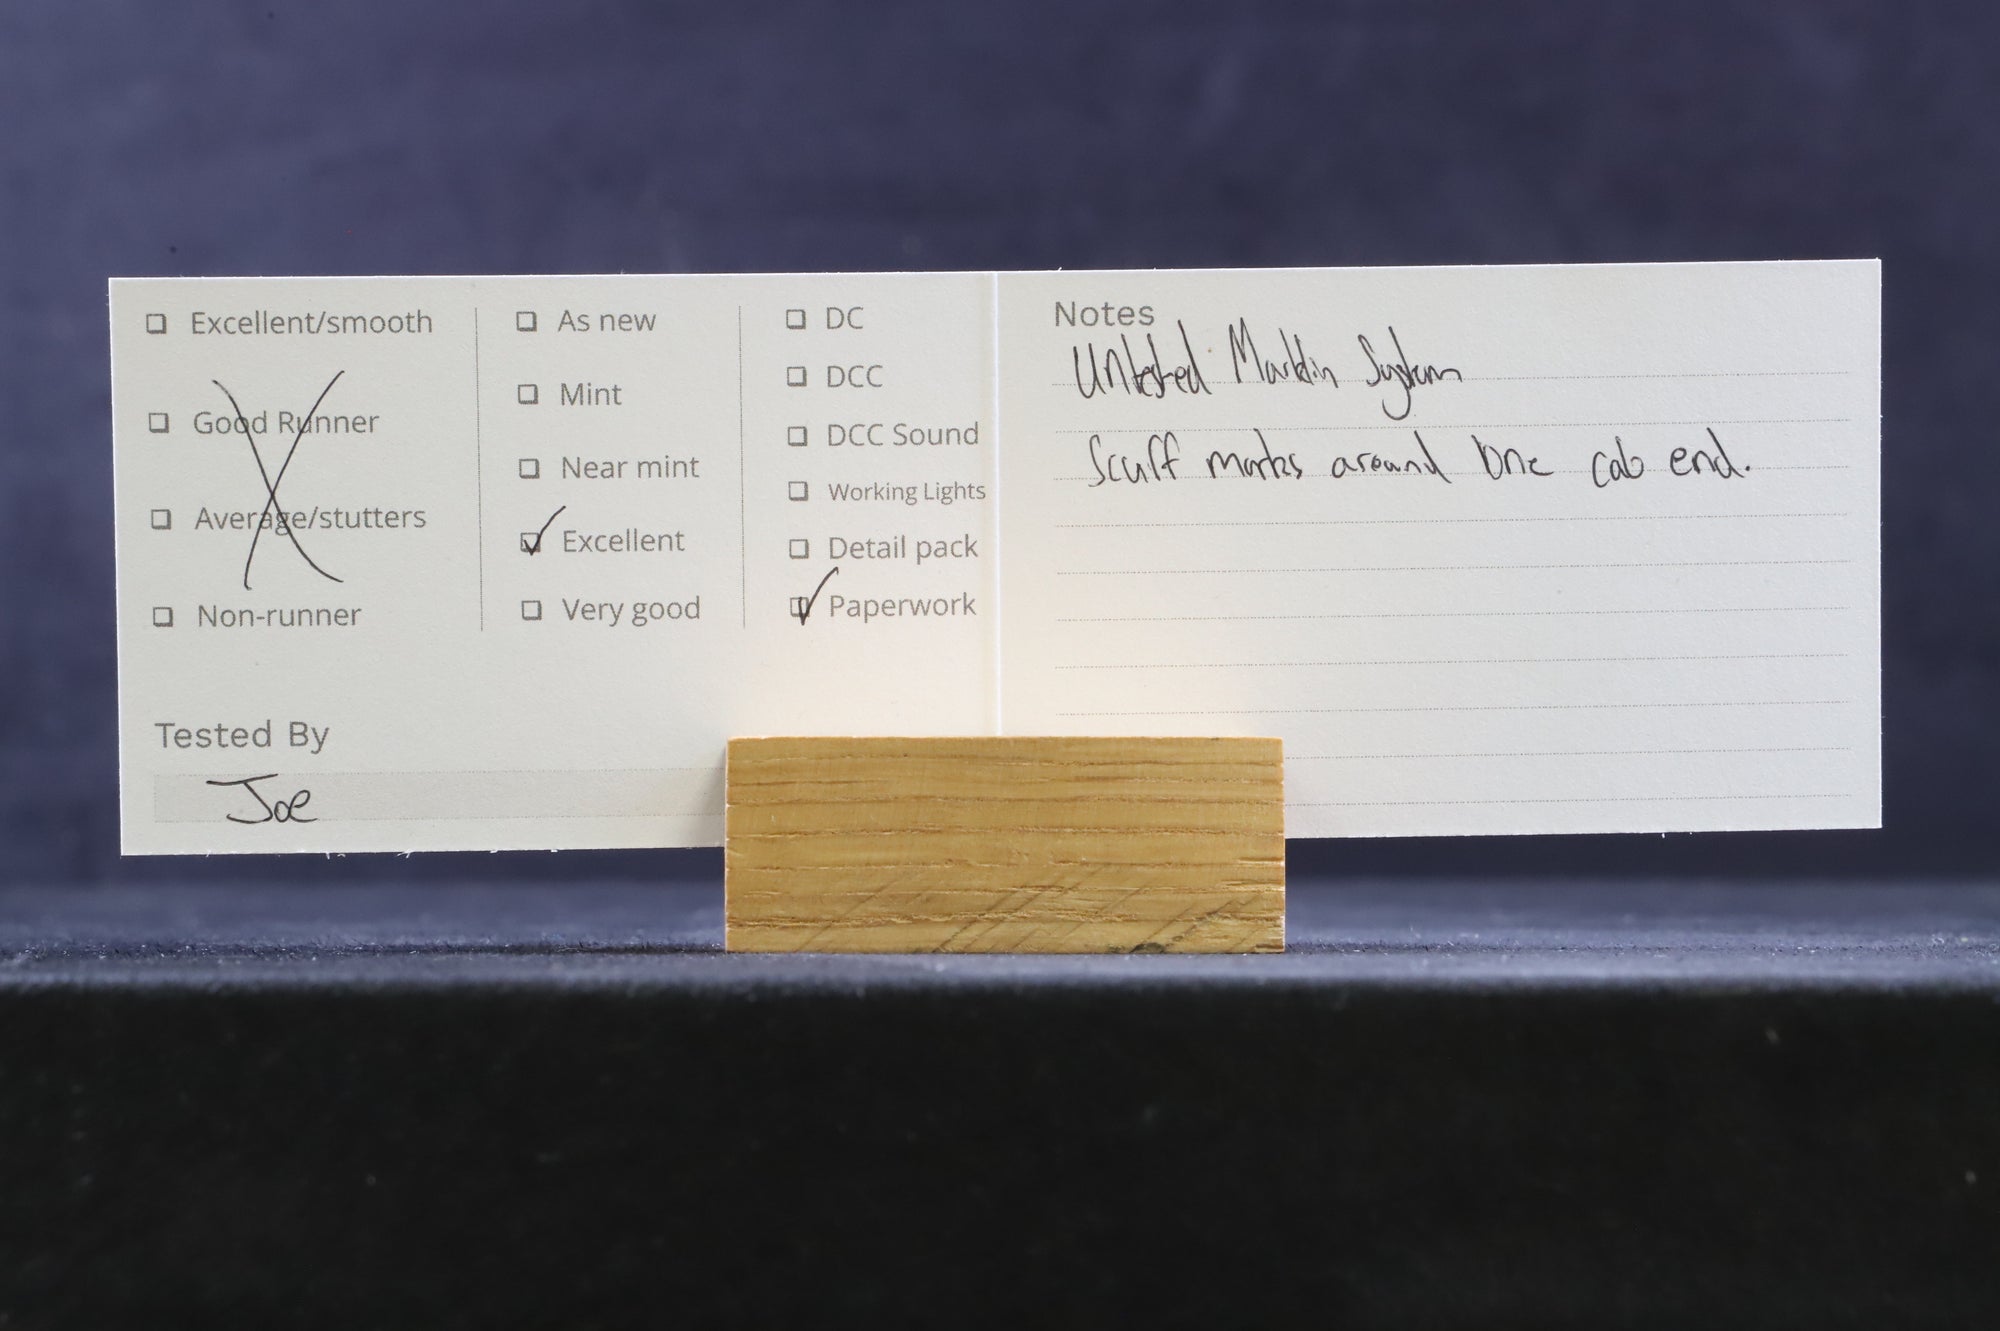 Excellent/smooth
Good Runner
Average/stutters
Non-runner
As new
Mint
Near mint
Excellent
Very good
DC
DCC
DCC Sound
Working Lights
Detail pack
Paperwork
Tested By
Joe
Notes
Untested Marklin System
Scuff marks around one cab end.